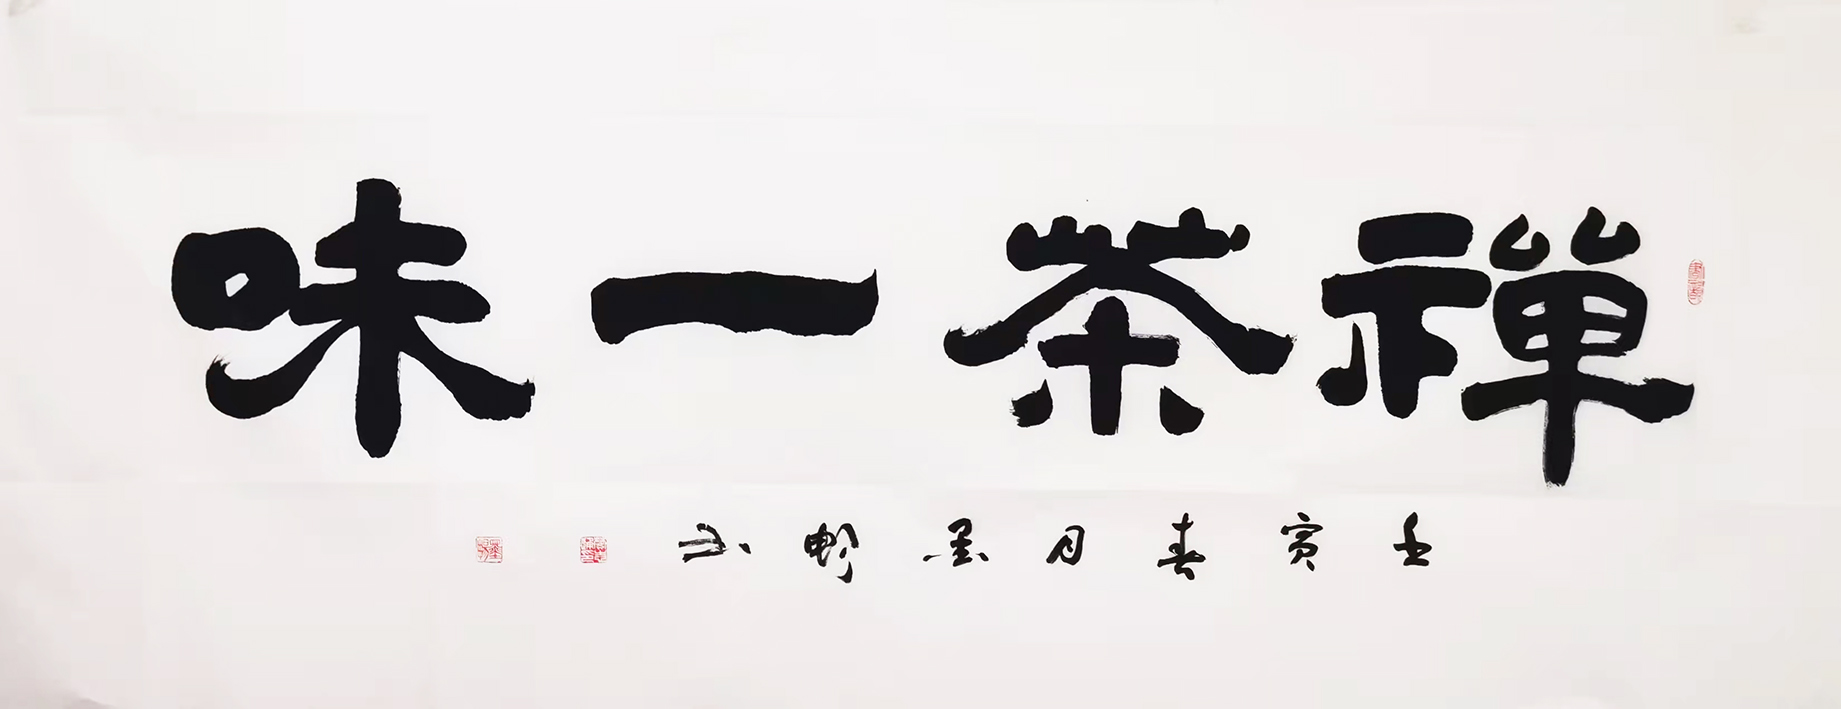 禪茶一味
壬寅春月墨